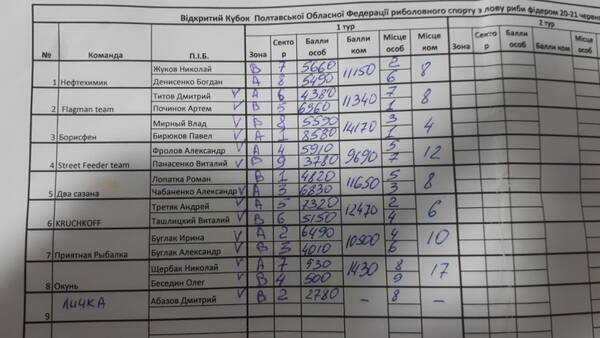 Відкритий Кубок Полтавської Обласної Федерації риболовного спорту з лову риби фідером 20-21 червня
1 тур 2 тур
№ Команда П.І.Б. Зона Сектор Балли особ Балли ком Місце особ Місце ком Зона Сектор Балли особ Балли ком Місце особ
1 Нефтехимик Жуков Николай В 7 5660 11150 2 8
Денисенко Богдан А 8 5490 6
2 Flagman team Титов Дмитрий А 6 4380 11340 7 8
Починок Артем В 5 6960 1
3 Борисфен Мирный Влад В 8 5590 14170 3 4
Бирюков Павел А 1 8580 1
4 Street Feeder team Фролов Александр А 4 5910 9690 5 12
Панасенко Виталий В 9 3780 7
5 Два сазана Лопатка Роман В 1 4820 11650 5 8
Чабаненко Александр А 3 6830 3
6 KRUCHKOFF Третяк Андрей А 5 7320 12470 2 6
Ташлицкий Виталий В 6 5150 4
7 Приятная Рыбалка Буглак Ирина А 2 6490 10500 4 10
Буглак Александр В 3 4010 6
8 Окунь Щербак Николай А 7 930 1430 8 17
Беседин Олег В 4 500 9
9 ЛИЧКА Абазов Дмитрий В 2 2780 – 8 –